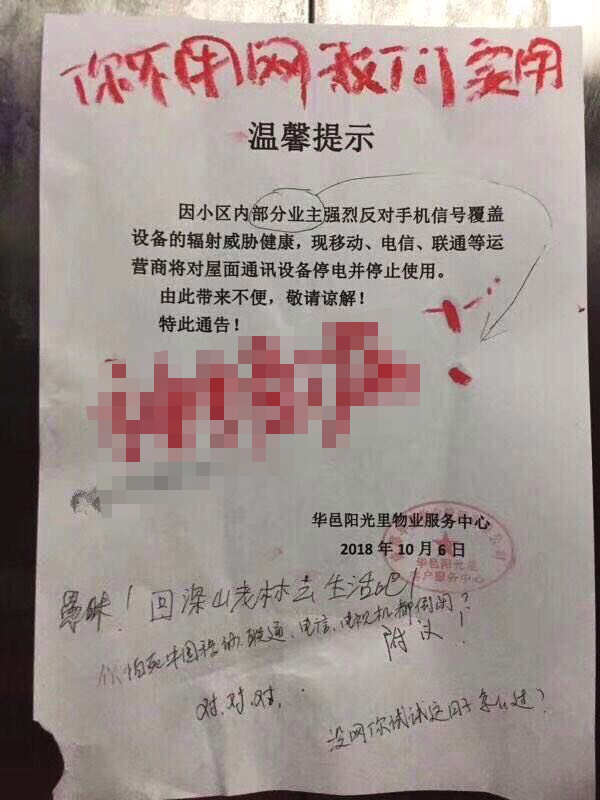 你不用网我们实用
温馨提示
因小区内部分业主强烈反对手机信号覆盖
设备的辐射威胁健康，现移动、电信、联通等运
营商将对屋面通讯设备停电并停止使用。
由此带来不便，敬请谅解！
特此通告！
华邑阳光里物业服务中心
2018 年 10 月 6 日
华邑阳光里
客户服务中心
愚昧！回深山老林去生活吧！
你怕死中国移动、联通、电信、电视机都倒闭？
附议！
对、对、对、
没网你试试这日子怎么过？